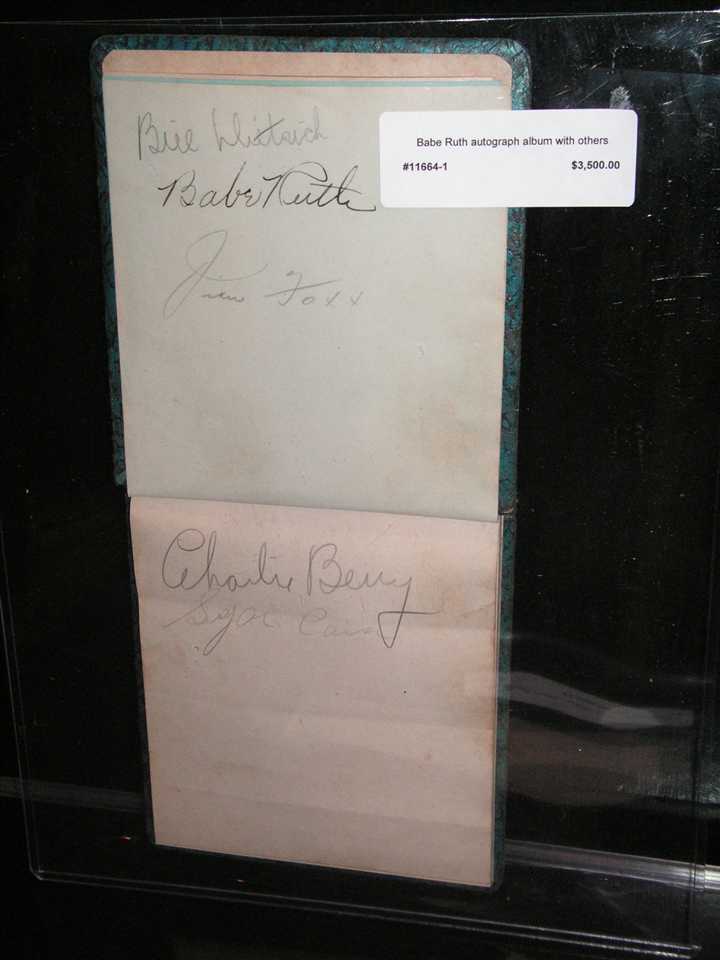 Babe Ruth autograph album with others
#11664-1 $3,500.00
Bill
Babe Ruth
Jim Foxx
Charlie Berry